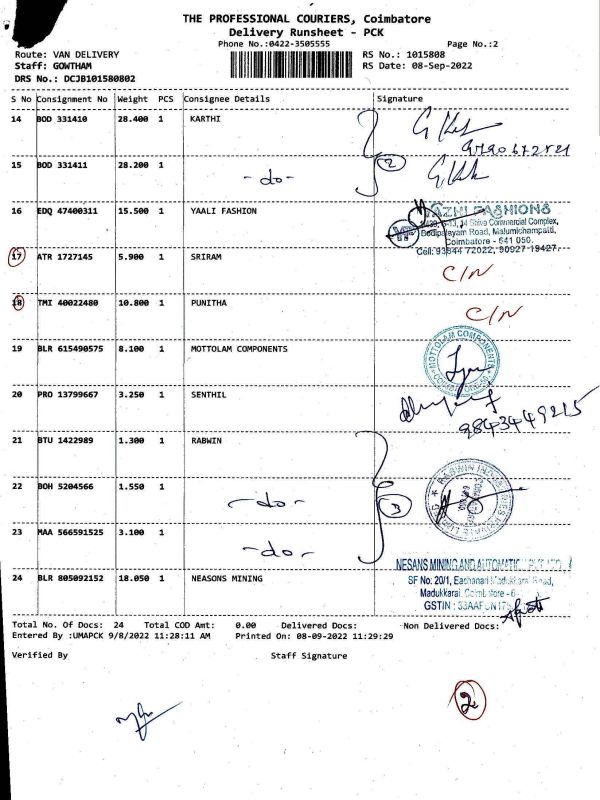 THE PROFESSIONAL COURIERS, Coimbatore
Delivery Runsheet - PCK
Phone No.:0422-3505555 Page No.:2
Route: VAN DELIVERY RS No.: 1015808
Staff: GOWTHAM RS Date: 08-Sep-2022
DRS No.: DCJB101580802
S No Consignment No Weight PCS Consignee Details Signature
14 BOD 331410 28.400 1 KARTHI
15 BOD 331411 28.200 1 -do- 2
16 EDQ 47400311 15.500 1 YAALI FASHION
FASHIONS
Shiva Commercial Complex,
Road, Malumichampatti,
Coimbatore - 641 050.
Cell: 93644 72022, 90927 19427
17 ATR 1727145 5.900 1 SRIRAM C/N
18 TMI 40022480 10.800 1 PUNITHA C/N
19 BLR 615490575 8.100 1 MOTTOLAM COMPONENTS
MOTTOLAM COMPONENTS
20 PRO 13799667 3.250 1 SENTHIL
9843449215
21 BTU 1422989 1.300 1 RABWIN
22 BOH 5204566 1.550 1 -do- 3
23 MAA 566591525 3.100 1 -do-
24 BLR 805092152 18.050 1 NEASONS MINING
NESANS MINING AND AUTOMATIC
SF No: 20/1, Eachanari Road,
Madukkarai,
GSTIN :
Total No. Of Docs: 24 Total COD Amt: 0.00 Delivered Docs: Non Delivered Docs:
Entered By :UMAPCK 9/8/2022 11:28:11 AM Printed On: 08-09-2022 11:29:29
Verified By Staff Signature
2